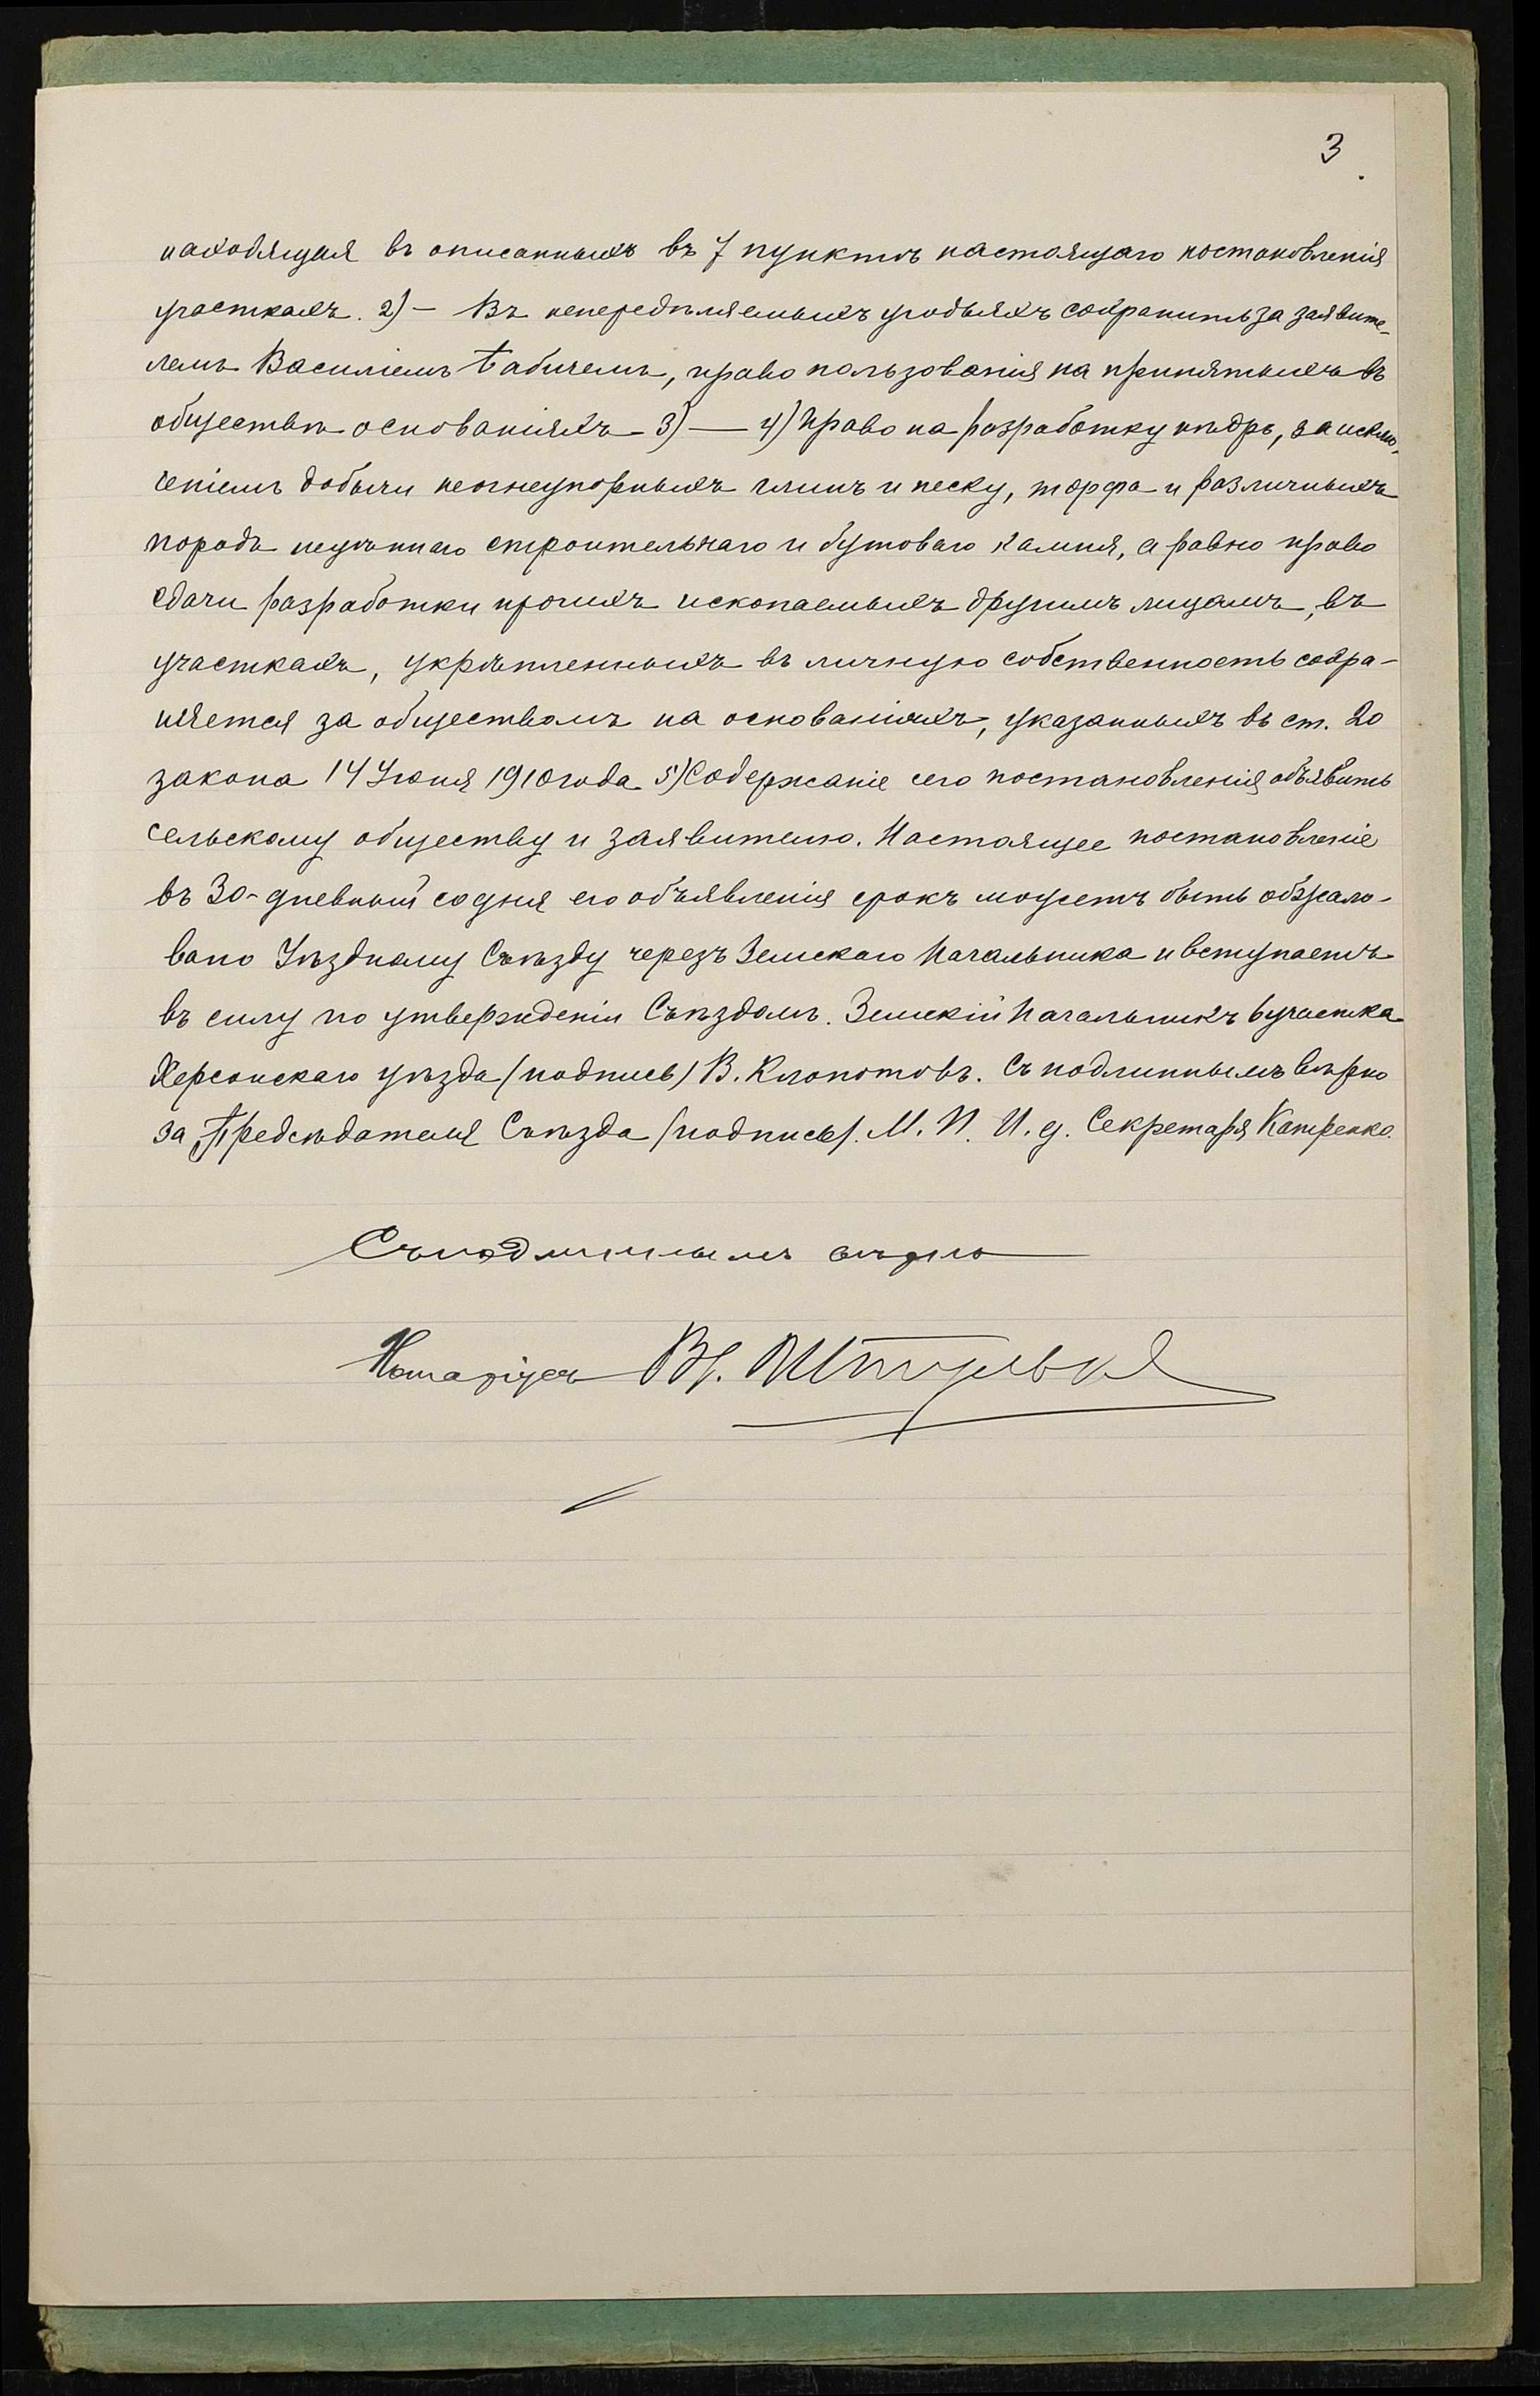 3
находящiяся въ описанныхъ въ 7 пунктѣ настоящаго постановленiя
участкахъ. 2) – Въ непередѣляемыхъ угодьяхъ сохранить за заявите-
лемъ Василiемъ Бабичемъ, право пользованiя на принятыхъ въ
обществѣ основанiяхъ 3) — 4) Право на разработку нѣдръ, за исклю-
ченiемъ добычи неогнеупорныхъ глинъ и песку, торфа и различныхъ
породъ неученнаго строительнаго и бутоваго камня, а равно право
сдачи разработки прочихъ ископаемыхъ другимъ лицамъ, въ
участкахъ, укрѣпленныхъ въ личную собственность сохра-
няется за обществомъ на основанiяхъ, указанныхъ въ ст. 20
закона 14 Iюня 1910 года. 5) Содержанiе сего постановленiя объявить
сельскому обществу и заявителю. Настоящее постановленiе
въ 30-дневный со дня его объявленiя срокъ можетъ быть обжало-
вано Уѣздному Съѣзду черезъ Земскаго Начальника и вступаетъ
въ силу по утвержденiи Съѣздомъ. Земскiй Начальникъ 6 участка
Херсонскаго уѣзда (подпись) В. Клопотовъ. Съ подлиннымъ вѣрно
за Предсѣдателя Съѣзда (подпись). М. П. И. д. Секретаря Катренко.
Съ подлиннымъ вѣрно
Нотарiусъ Вл. Штулька